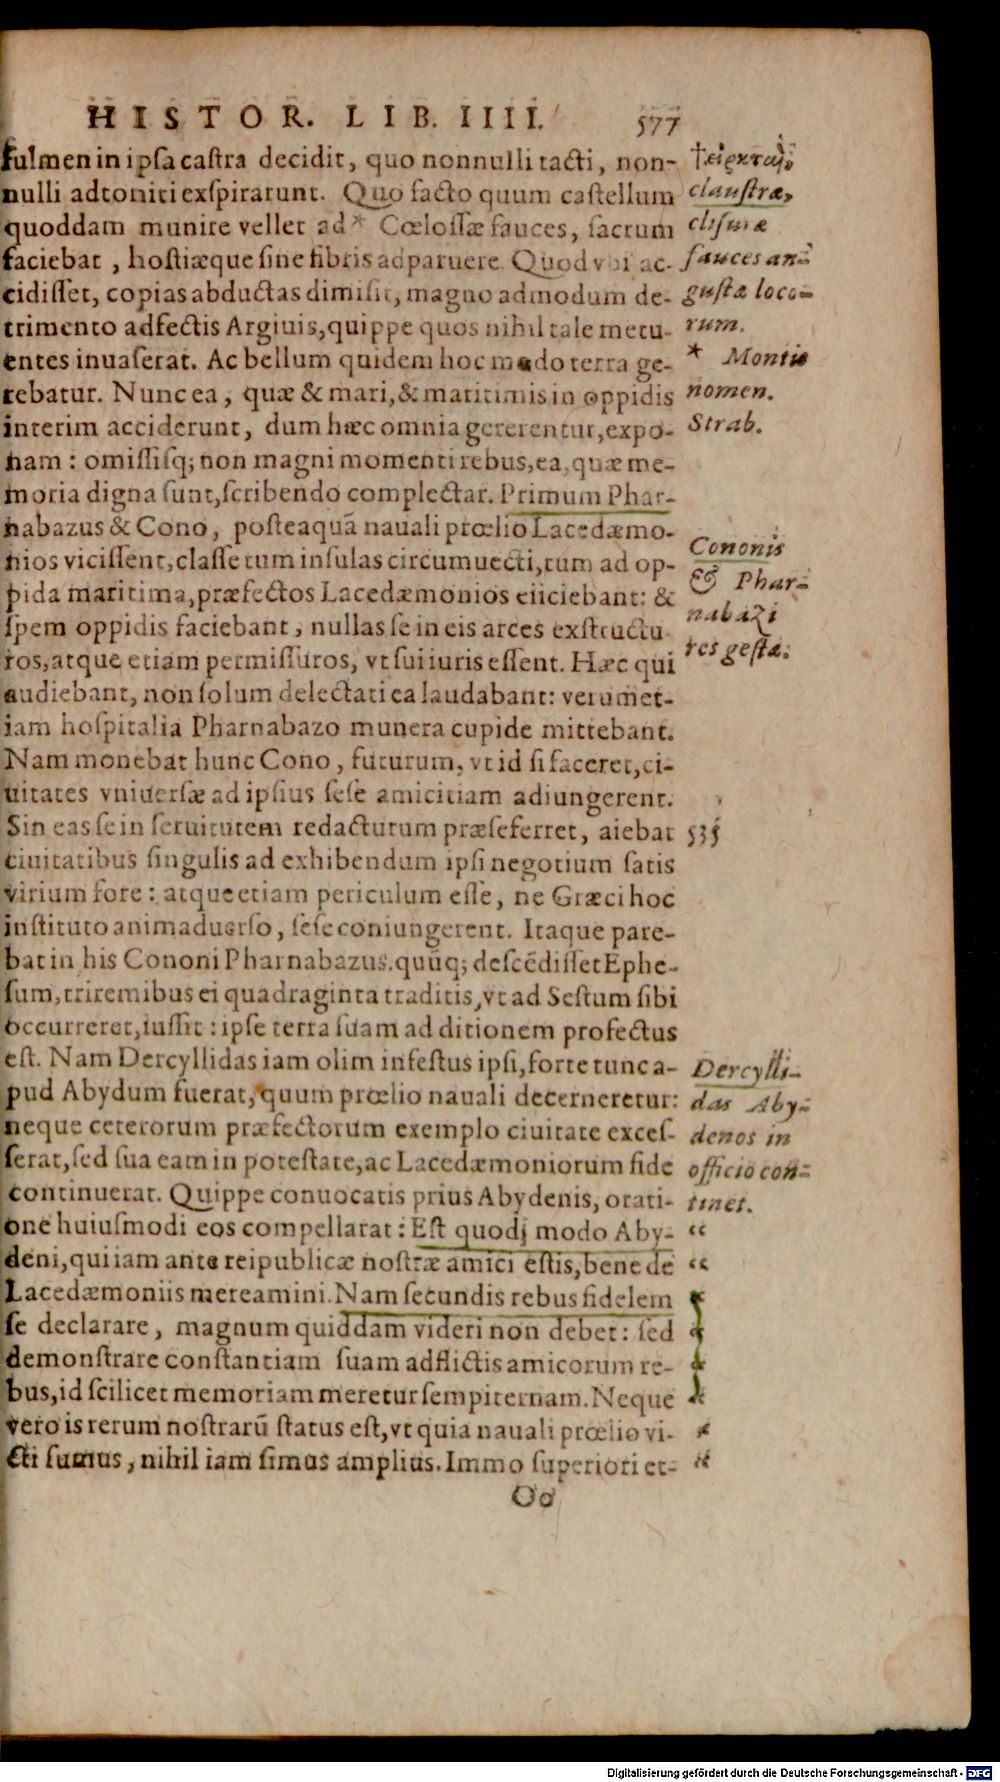 HISTOR. LIB. IIII. 577
fulmen in ipsa castra decidit, quo nonnulli tacti, non-
nulli adtoniti exspirarunt. Quo facto quum castellum
quoddam munire vellet ad * Cœlossæ fauces, sacrum
faciebat, hostiæque sine fibris adparuere. Quod vbi ac-
cidisset, copias abductas dimisit, magno admodum de-
trimento adfectis Argiuis, quippe quos nihil tale metu-
entes inuaserat. Ac bellum quidem hoc modo terra ge-
rebatur. Nunc ea, quæ & mari, & maritimis in oppidis
interim acciderunt, dum hæc omnia gererentur, expo-
nam: omissisq; non magni momenti rebus, ea, quæ me-
moria digna sunt, scribendo complectar. Primum Phar-
nabazus & Cono, posteaquã nauali prœlio Lacedæmo-
nios vicissent, classe tum insulas circumuecti, tum ad op-
pida maritima, præfectos Lacedæmonios eiiciebant: &
spem oppidis faciebant, nullas se in eis arces exstructu-
ros, atque etiam permissuros, vt sui iuris essent. Hæc qui
audiebant, non solum delectati ea laudabant: verumet-
iam hospitalia Pharnabazo munera cupide mittebant.
Nam monebat hunc Cono, futurum, vt id si faceret, ci-
uitates vniuersæ ad ipsius sese amicitiam adiungerent.
Sin eas se in seruitutem redacturum præseferret, aiebat
ciuitatibus singulis ad exhibendum ipsi negotium satis
virium fore: atque etiam periculum esse, ne Græci hoc
instituto animaduerso, sese coniungerent. Itaque pare-
bat in his Cononi Pharnabazus. quũq; descẽdisset Ephe-
sum, triremibus ei quadraginta traditis, vt ad Sestum sibi
occurreret, iussit: ipse terra suam ad ditionem profectus
est. Nam Dercyllidas iam olim infestus ipsi, forte tunc a-
pud Abydum fuerat, quum prœlio nauali decerneretur:
neque ceterorum præfectorum exemplo ciuitate exces-
serat, sed sua eam in potestate, ac Lacedæmoniorum fide
continuerat. Quippe conuocatis prius Abydenis, orati-
one huiusmodi eos compellarat: Est quodj modo Aby-
deni, qui iam ante reipublicæ nostræ amici estis, bene de
Lacedæmoniis mereamini. Nam secundis rebus fidelem
se declarare, magnum quiddam videri non debet: sed
demonstrare constantiam suam adflictis amicorum re-
bus, id scilicet memoriam meretur sempiternam. Neque
vero is rerum nostrarũ status est, vt quia nauali prœlio vi-
cti sumus, nihil iam simus amplius. Immo superiori et-
Oo
† εἱρκταὶ,
claustræ,
clisuræ
fauces an-
gustæ loco-
rum.
* Montis
nomen.
Strab.
Cononis
& Phar-
nabazi
res gestæ.
535
Dercylli-
das Aby-
denos in
officio con-
tinet.
“
“
“
“
“
“
“
“
Digitalisierung gefördert durch die Deutsche Forschungsgemeinschaft - DFG